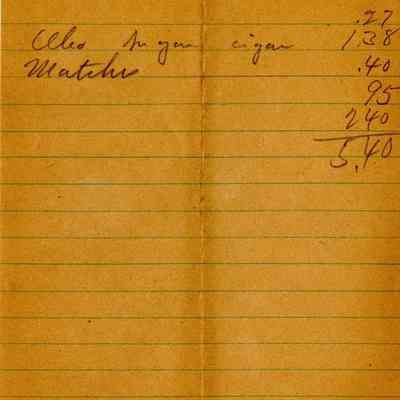 .27
Also for you cigar 1.38
Matches .40
95
2 40
5.40